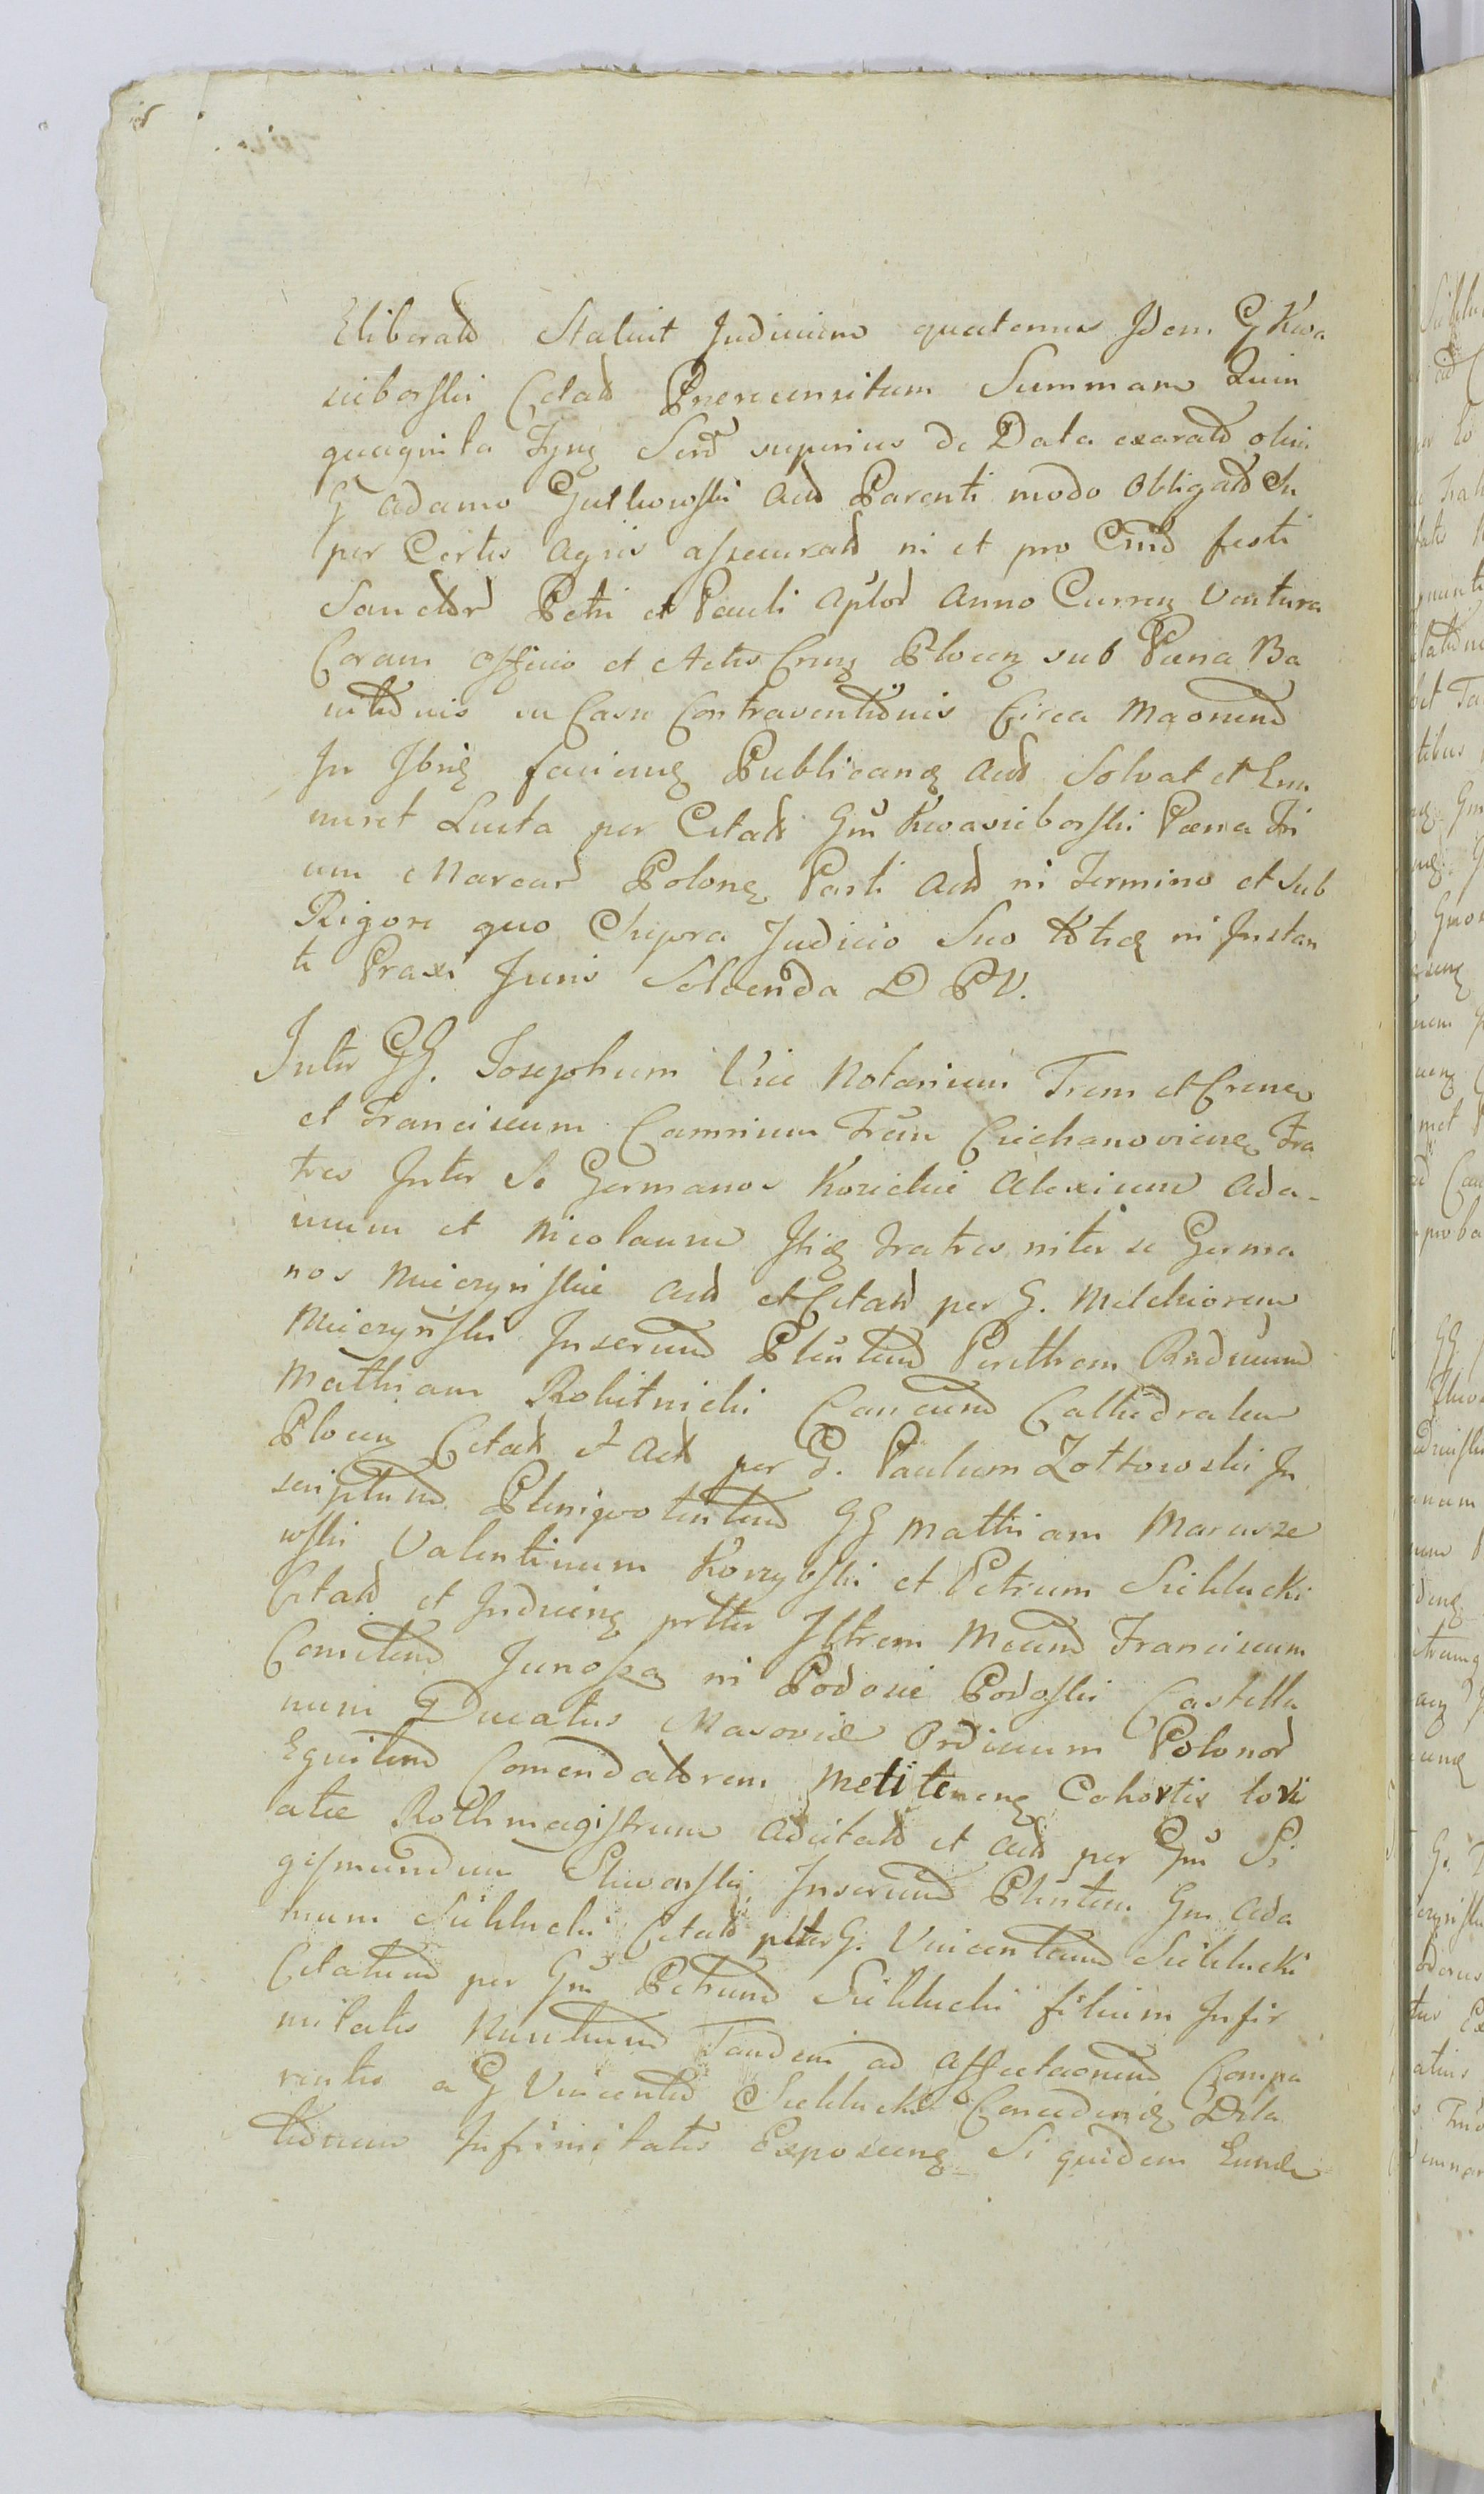 Eliberatd Statuit Judicium quatenus Idem G Kwa
sieborski Citatd Praerecensitam Summam Quin
quaginta Tynf Send superius de Data exaratd olim
G Adamo Gutkowski Actd Parenti modo Obligatd Su
per Certis Agris assecuratd in et pro Crnd festi
Sanctor Petri et Pauli Aplor Anno Curren Ventura
Coram Officio et Actis Crnz Plocen sub Paena Ba
nitdnis in Casu Contraventidnis Circa Maonend
In facienz Publicanz Actd Solvat et Enu
meret Luita per Citatd Gm Kwasieborski Paena Tri
um Marcard Polonz Parti Actd in Termino et sub
Rigore quo Supra Judicio Suo in Instan
ti Praxi Juris Solvenda D P V.
Inter GG. Josephum Vice Notarium Trem et Crenz
et Franciscum Camrium Trem Ciechanoviens Fra
tres Inter Se Germanos Kozickie Alexium Ada-
mum et Nicolaum Fratres inter se Germa
nos Mieczynskie Actd et Citatd per G. Melchiorem
Mieczynski Inserund Plentend Perillrem Rndmum
Mathiam Rokitnicki Canonend Cathedralem
Plocenz Citatd et Actd per G. Paulum Zottowski In
scriptum Plenipotentend GG Mathiam Marusze
wski Valentinum Korzybski et Petrum Sieklucki
Citatd et Inducenz Illtrem Mcund Franciscum
Comitend Junosza in Podosie Podoski Castella
num Ducatus Masoviae Ordinum Polonor
Equitend Comendatorem Cohortis lori
atae Rothmagistrum Adcitatd et Actd per Gm Si
gismundum Inserund Plentem Gm Ada
mum Sieklucki Citatd G. Vincentium Sieklucki
Citatum per Gm Petrum Sieklucki filium Infir
mitatis Nuntium Tandem ad Affectaonend Compa
rentis a G Vincentio Sieklucki Concedenz Dila
tidnem Infirmitatis Exposcenz Si quidem Eunde